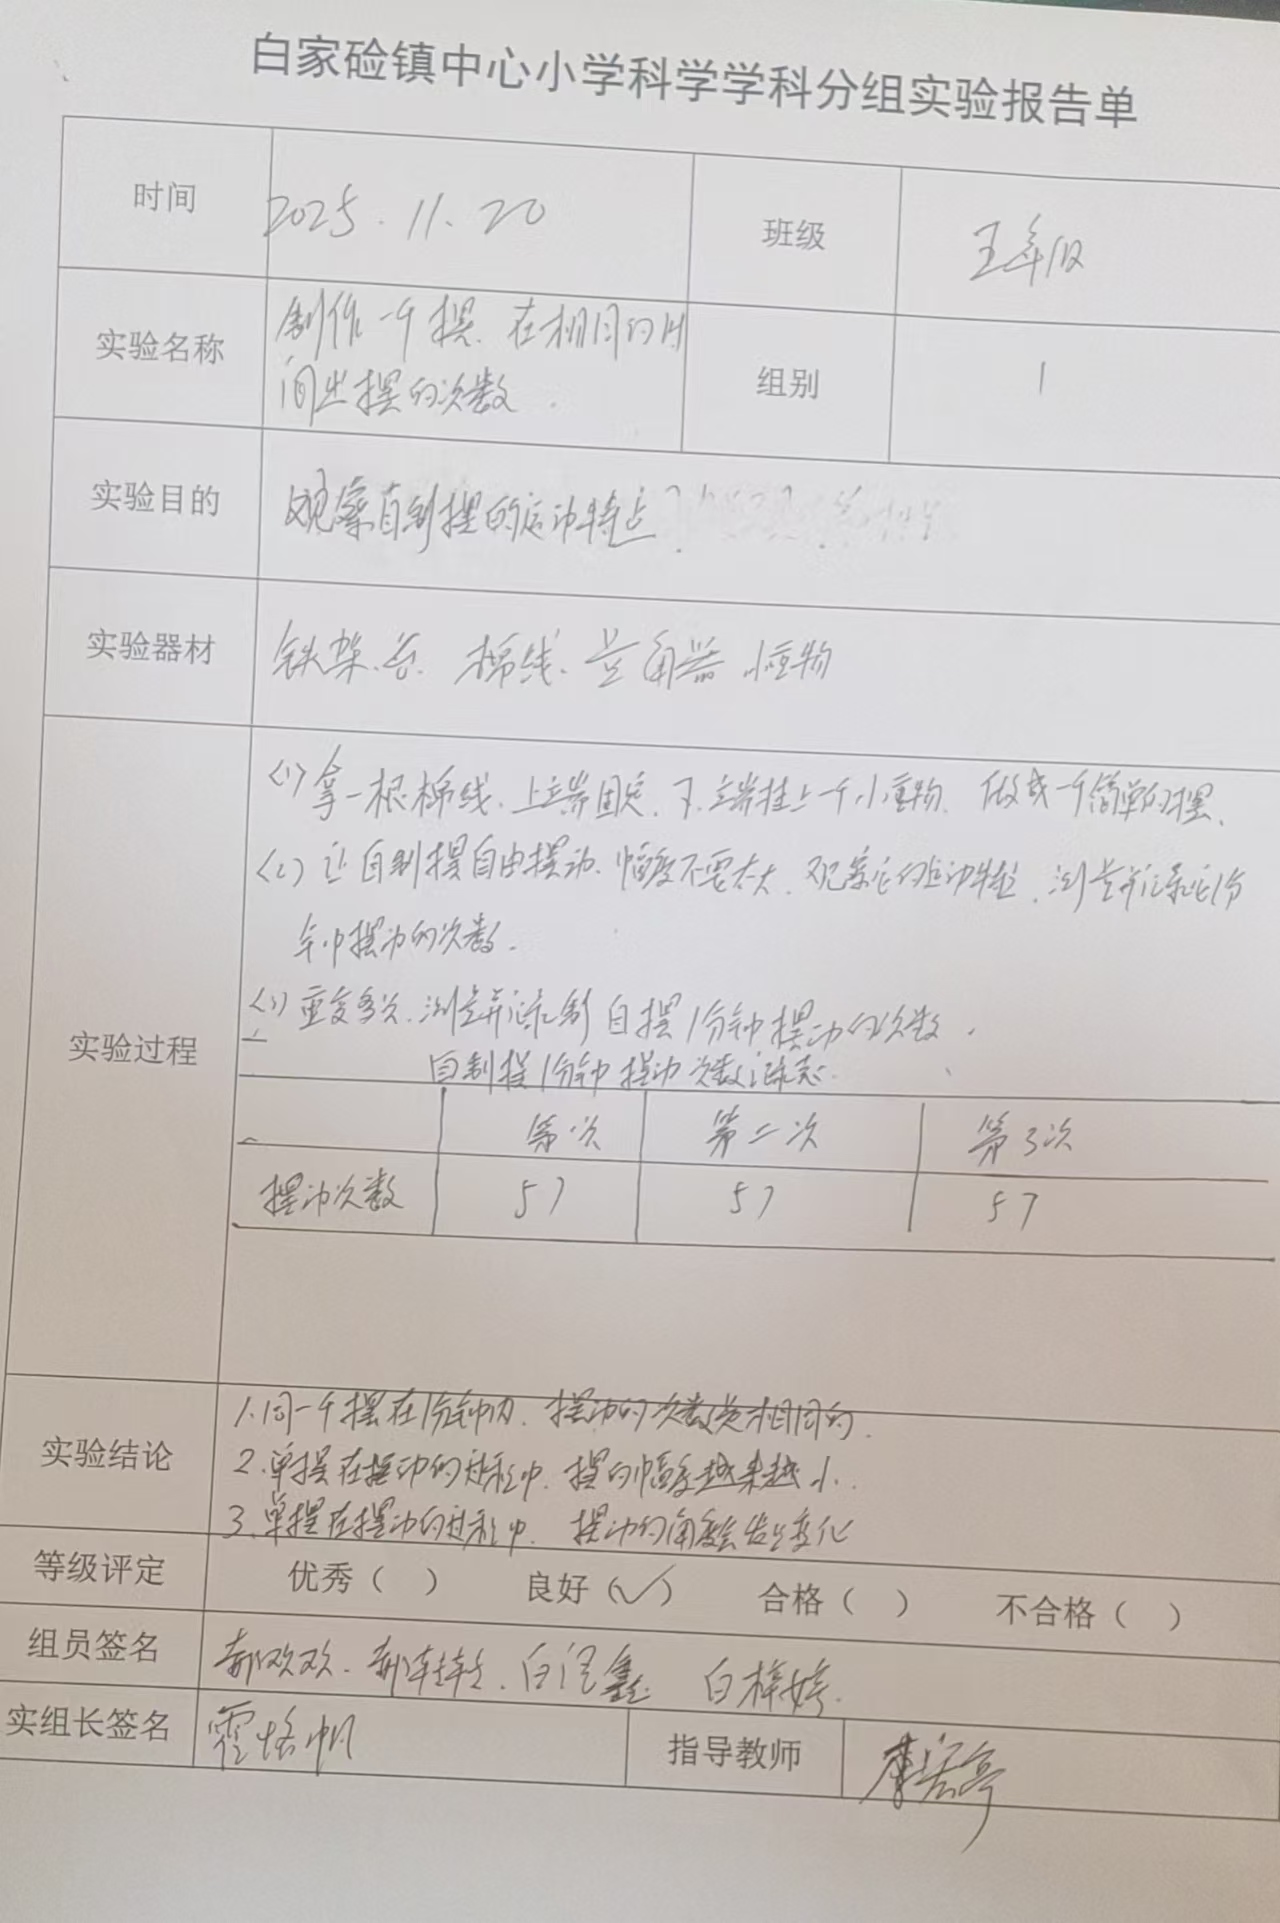 白家硷镇中心小学科学学科分组实验报告单
时间 2025.11.20 班级 五年级
实验名称 制作一个摆、在相同的时
间出摆的次数. 组别 1
实验目的 观察自制摆的运动特点.
实验器材 铁架台、棉线、量角器 小重物
实验过程
<1> 拿一根棉线、上端固定、下端挂上一个小重物、做成一个简单的摆、
<2> 让自制摆自由摆动、幅度不要太大、观察它的运动特点、测量并记录它1分
钟中摆动的次数.
<3> 重复多次、测量并记录制自摆1分钟摆动的次数.
自制摆1分钟摆动次数记录表.
第一次 第二次 第3次
摆动次数 57 57 57
实验结论
1.同一个摆在1分钟内、摆动的次数是相同的.
2.单摆在摆动的过程中、摆的幅度越来越小.
3.单摆在摆动的过程中、摆动的角度会发生变化
等级评定 优秀（ ） 良好（✓） 合格（ ） 不合格（ ）
组员签名 郝欢欢、白梓婷.
实组长签名 指导教师